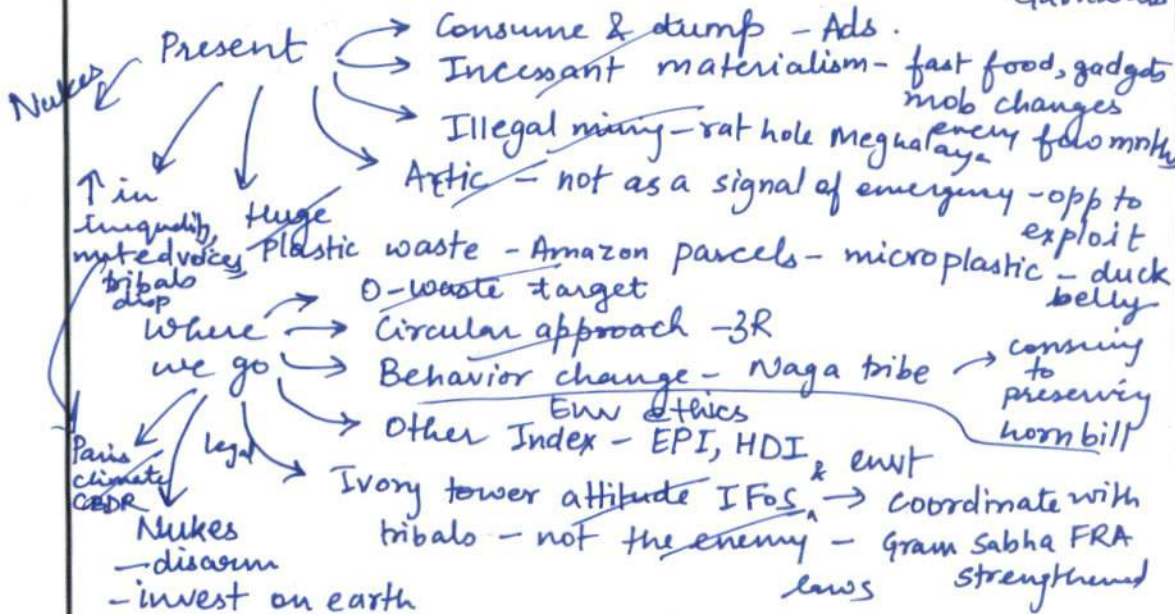 Present
Nukes
Consume & dump - Ads.
Incessant materialism - fast food, gadgets
mob changes
every few mnths
Illegal mining - rat hole Meghalaya
Artic - not as a signal of emergency - opp to
exploit
↑ in
inequality,
muted voices
tribals
disp
Huge
Plastic waste - Amazon parcels - microplastic - duck
belly
Where
we go
O-waste target
Circular approach - 3R
Behavior change - Naga tribe → consuming
to
preserving
hornbill
Env ethics
Other Index - EPI, HDI
Ivory tower attitude IFoS & envt → coordinate with
tribals - not the enemy - Gram Sabha FRA
laws strengthened
Legal
Paris
climate
CBDR
Nukes
- disarm
- invest on earth